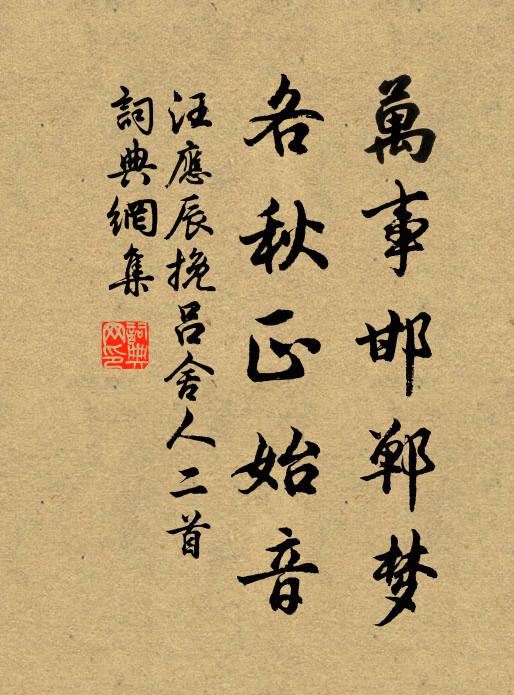 萬事邯鄲梦
各秋正始音
汪應辰挽呂舍人二首
詞典網集
詞典网印